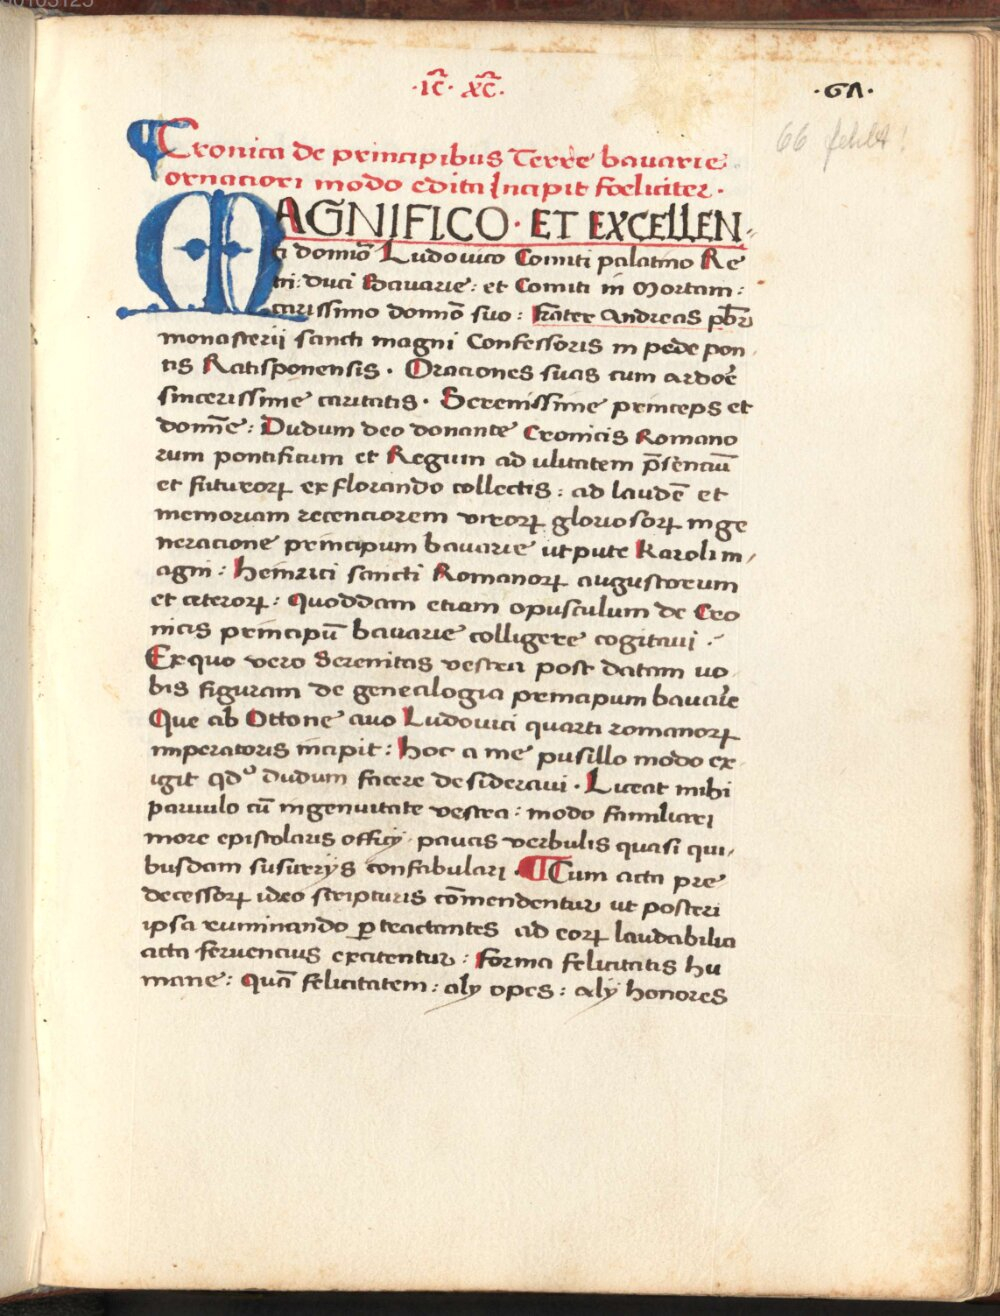 ·ic̄· xc̄·
·6Λ·
66 fehlt!
Cronica de principibus Terre bauarie
ornaciori modo edita Incipit fœliciter·
MAGNIFICO· ET EXCELLEN
ti domīo Ludouico Comiti palatino Re
ni: duci Bauarie: et Comiti in Mortam:
carissimo domīo suo: frater Andreas pb̄r
monasterij sancti magni Confessoris in pede pon
tis Ratisponensis· Oraciones suas cum ardoē
sincerissime caritatis· Serenissime princeps et
domīe: Dudum deo donante Cronicis Romano
rum pontificum et Regum ad vlitatem p̄senciū
et futurorꝝ ex florando collectis: ad laudē et
memoriam recenciorem virorꝝ gloriosorꝝ in ge
neracione principum bauarie utpute Karoli m
agni: Heinrici sancti Romanorꝝ augustorum
et ceterorꝝ: Quoddam etiam opusculum de Cro
nicis principū bauarie colligere cogitaui:
Ex quo vero Serenitas vestra post datam vo
bis figuram de genealogia principum bauarie
Que ab Ottone auo Ludouici quarti romanorꝝ
imperatoris incipit: hoc a me pusillo modo ex
igit qdo dudum facere desideraui· Liceat mihi
paruulo cū ingenuitate vestra: modo familiari
more epistolaris officij paucis verbulis quasi qui
busdam susurrijs confabulari· ¶Cum acta pre
decessorꝝ ideo scripturis cōmendentur ut posteri
ipsa ruminando ꝑtractantes ad eorꝝ laudabilia
acta feruencius excitentur: forma felicitatis hu
mane: quā felicitatem: alij opes: alij honores